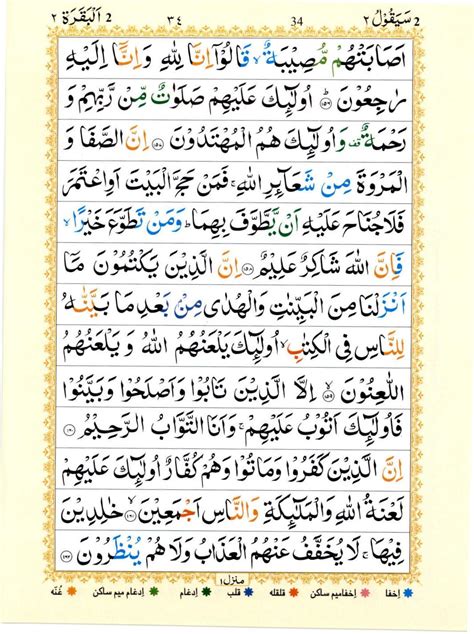 سَيَقُوْلُ ٢ 2 34 ٣٤ اَلْبَقَرَة ٢ 2
اَصَابَتْهُمْ مُّصِيْبَةٌ ۙ قَالُوْۤا اِنَّا لِلّٰهِ وَاِنَّاۤ اِلَيْهِ
رٰجِعُوْنَ ؕ﴿۱۵۶﴾ اُولٰٓئِكَ عَلَيْهِمْ صَلَوٰتٌ مِّنْ رَّبِّهِمْ وَ
رَحْمَةٌ ۟ وَاُولٰٓئِكَ هُمُ الْمُهْتَدُوْنَ ﴿۱۵۷﴾ اِنَّ الصَّفَا وَ
الْمَرْوَةَ مِنْ شَعَآئِرِ اللّٰهِ ۚ فَمَنْ حَجَّ الْبَيْتَ اَوِاعْتَمَرَ
فَلَاجُنَاحَ عَلَيْهِ اَنْ يَّطَّوَّفَ بِهِمَا ؕ وَمَنْ تَطَوَّعَ خَيْرًا ۙ
فَاِنَّ اللّٰهَ شَاكِرٌ عَلِيْمٌ ﴿۱۵۸﴾ اِنَّ الَّذِيْنَ يَكْتُمُوْنَ مَاۤ
اَنْزَلْنَا مِنَ الْبَيِّنٰتِ وَالْهُدٰى مِنْۢ بَعْدِ مَا بَيَّنّٰهُ
لِلنَّاسِ فِى الْكِتٰبِ ۙ اُولٰٓئِكَ يَلْعَنُهُمُ اللّٰهُ وَ يَلْعَنُهُمُ
اللّٰعِنُوْنَ ۙ﴿۱۵۹﴾ اِلَّا الَّذِيْنَ تَابُوْا وَاَصْلَحُوْا وَبَيَّنُوْا
فَاُولٰٓئِكَ اَتُوْبُ عَلَيْهِمْ ۚ وَاَنَا التَّوَّابُ الرَّحِيْمُ ﴿۱۶۰﴾
اِنَّ الَّذِيْنَ كَفَرُوْا وَمَاتُوْا وَهُمْ كُفَّارٌ اُولٰٓئِكَ عَلَيْهِمْ
لَعْنَةُ اللّٰهِ وَالْمَلٰٓئِكَةِ وَالنَّاسِ اَجْمَعِيْنَ ۙ﴿۱۶۱﴾ خٰلِدِيْنَ
فِيْهَا ۚ لَا يُخَفَّفُ عَنْهُمُ الْعَذَابُ وَلَا هُمْ يُنْظَرُوْنَ ﴿۱۶۲﴾
منزل ١
اخفا اخفامیم ساکن قلقله قلب ادغام ادغام میم ساکن غُنّه